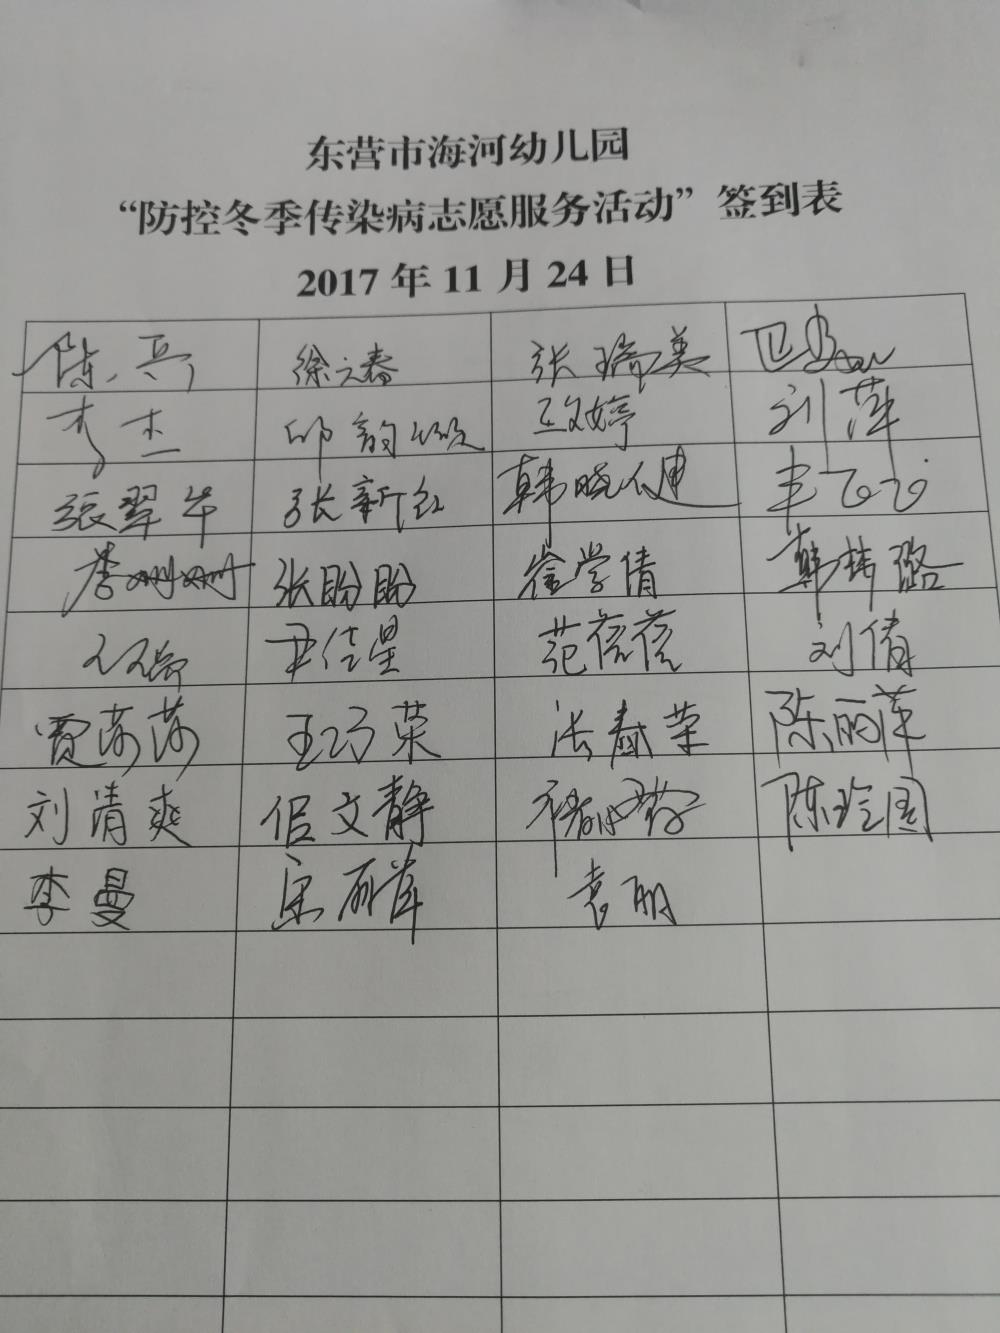 东营市海河幼儿园
“防控冬季传染病志愿服务活动”签到表
2017年11月24日
陈兵 徐元春 张瑞美
李杰 邱韵颂 王文婷 刘萍
張翠华 张新红 韩晓健 丰飞飞
李姗姗 张盼盼 崔学倩 韩梅璐
尹佳星 范蓓蓓 刘倩
贾莎莎 王巧荣 张春荣 陈丽萍
刘清爽 侣文静 陈玲图
李曼 宋丽萍 袁丽